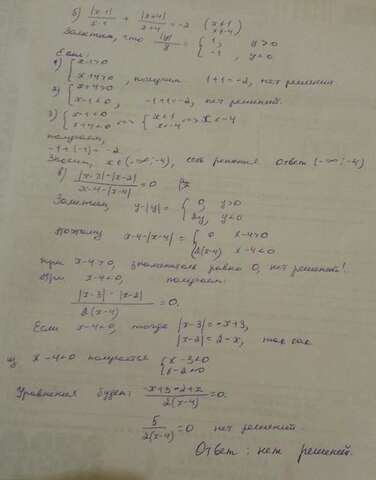 б) |x-1|/x-1 + |x+4|/x+4 = -2 (x≠1 x≠-4)
Заметим, что |y|/y = { 1, y>0
-1, y<0
Если:
1) { x-1>0
x+4>0, получим 1+1=-2, нет решения.
2) { x+4>0
x-1<0, -1+1=-2, нет решений.
3) { x-1<0
x+4<0 <=> { x<1
x<-4 => x<-4
получаем,
-1+(-1)=-2
Значит, x∈(-∞;-4), есть решения Ответ (-∞;-4)
в) |x-3|-|x-2| / x-4-|x-4| = 0
Заметим, y-|y| = { 0, y>0
2y, y<0
Поэтому x-4-|x-4| = { 0 x-4>0
2(x-4) x-4<0
при x-4>0, знаменатель равно 0, нет решений!
При x-4<0, получаем:
|x-3|-|x-2| / 2(x-4) = 0.
Если x-4<0, тогда |x-3|=-x+3,
|x-2|=2-x, так как
из x-4<0 получается { x-3<0
x-2<0
Уравнения будет: -x+3+2+x / 2(x-4) = 0.
5 / 2(x-4) = 0 нет решений.
Ответ: нет решений.